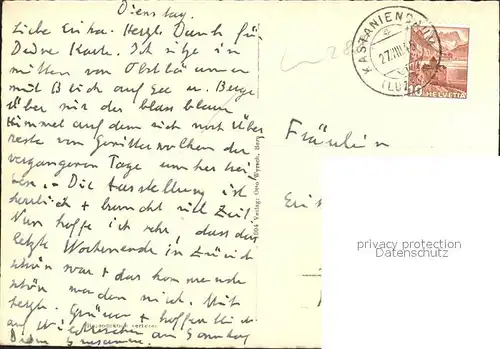 Dienstag.
Liebe Erika. Herzl. Dank für
Deine Karte. Ich sitze in
mitten von Obstbäumen
mit Blick auf See u. Berge
Über mir der blass blaue
Himmel auf dem sich noch Über
reste von Gewitterwolken der
vergangenen Tage umher
- Die Ausstellung ist
herrlich + braucht viel Zeit.
Nun hoffe ich sehr, dass das
letzte Wochenende in Zürich
schön war + das kommende
schön werden wird. Mit
herzl. Grüssen + hoffentlich
auf Wiedersehen am Sonntag
Deine Susanne.
Fräulein
KASTANIENBAUM
(LUZERN)
27.VIII.
HELVETIA
10
Verlag: Otto Wyrsch,
privacy protection
Datenschutz